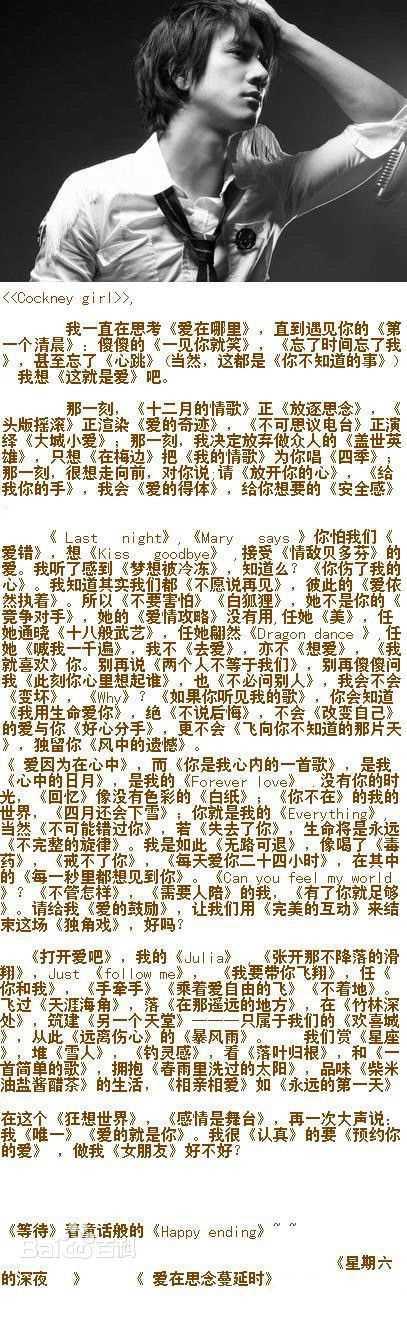 <<Cockney girl>>,
我一直在思考《爱在哪里》，直到遇见你的《第
一个清晨》：傻傻的《一见你就笑》，《忘了时间忘了我
》，甚至忘了《心跳》(当然，这都是《你不知道的事》)
我想《这就是爱》吧。
那一刻，《十二月的情歌》正《放逐思念》，《
头版摇滚》正渲染《爱的奇迹》，《不可思议电台》正演
绎《大城小爱》；那一刻，我决定放弃做众人的《盖世英
雄》，只想《在梅边》把《我的情歌》为你唱《四季》；
那一刻，很想走向前，对你说;请《放开你的心》，《给
我你的手》，我会《爱的得体》，给你想要的《安全感》
《 Last night》,《Mary says 》你怕我们《
爱错》，想《Kiss goodbye》 ,接受《情敌贝多芬》的
爱。我听了感到《梦想被冷冻》，知道么？《你伤了我的
心》。我知道其实我们都《不愿说再见》，彼此的《爱依
然执着》。所以《不要害怕》《白狐狸》，她不是你的《
竞争对手》，她的《爱情攻略》没有用,任她《美》，任
她通晓《十八般武艺》，任她翩然《Dragon dance 》,任
她《喊我一千遍》，我不《去爱》，亦不《想爱》，《我
就喜欢》你。别再说《两个人不等于我们》，别再傻傻问
我《此刻你心里想起谁》，也《不必问别人》，我会不会
《变坏》，《Why》？《如果你听见我的歌》，你会知道
《我用生命爱你》，绝《不说后悔》，不会《改变自己》
的爱与你《好心分手》，更不会《飞向你不知道的那片天
》，独留你《风中的遗憾》。
《 爱因为在心中》，而《你是我心内的一首歌》，是我
《心中的日月》，是我的《Forever love》 ,没有你的时
光，《回忆》像没有色彩的《白纸》；《你不在》的我的
世界，《四月还会下雪》；你就是我的《Everything》,
当然《不可能错过你》，若《失去了你》，生命将是永远
《不完整的旋律》。我是如此《无路可退》，像喝了《毒
药》，《戒不了你》，《每天爱你二十四小时》，在其中
的《每一秒里都想见到你》。《Can you feel my world
》？《不管怎样》，《需要人陪》的我，《有了你就足够
》。请给我《爱的鼓励》，让我们用《完美的互动》来结
束这场《独角戏》，好吗？
《打开爱吧》，我的《Julia》 ,《张开那不降落的滑
翔》，Just 《follow me》， 《我要带你飞翔》，任《
你和我》，《手牵手》《乘着爱自由的飞》《不着地》。
飞过《天涯海角》，落《在那遥远的地方》，在《竹林深
处》，筑建《另一个天堂》———只属于我们的《欢喜城
》，从此《远离伤心》的《暴风雨》。 我们赏《星座
》，堆《雪人》，《钓灵感》，看《落叶归根》，和《一
首简单的歌》，拥抱《春雨里洗过的太阳》，品味《柴米
油盐酱醋茶》的生活，《相亲相爱》如《永远的第一天》
在这个《狂想世界》，《感情是舞台》，再一次大声说：
我《唯一》《爱的就是你》。我很《认真》的要《预约你
的爱》 ，做我《女朋友》好不好？
《等待》着童话般的《Happy ending》~ ~
Bai百科
《星期六
的深夜 》 《 爱在思念蔓延时》